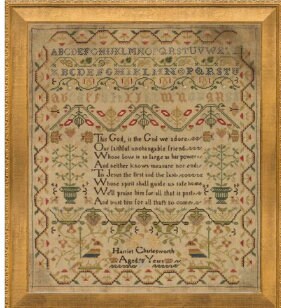 ABCDEFGHIJKLMNOPQRSTUVWXYZ
ABCDEFGHIKLMNOPQRSTU
This God, is the God we adore
Our faithful unchangable friend
Whose love is as large as his power
And neither knows measure nor end
Tis Jesus the first and the last
Whose spirit shall guide us safe home
We'll praise him for all that is past
And trust him for all thats to come
Harriet Charlesworth
Aged Years